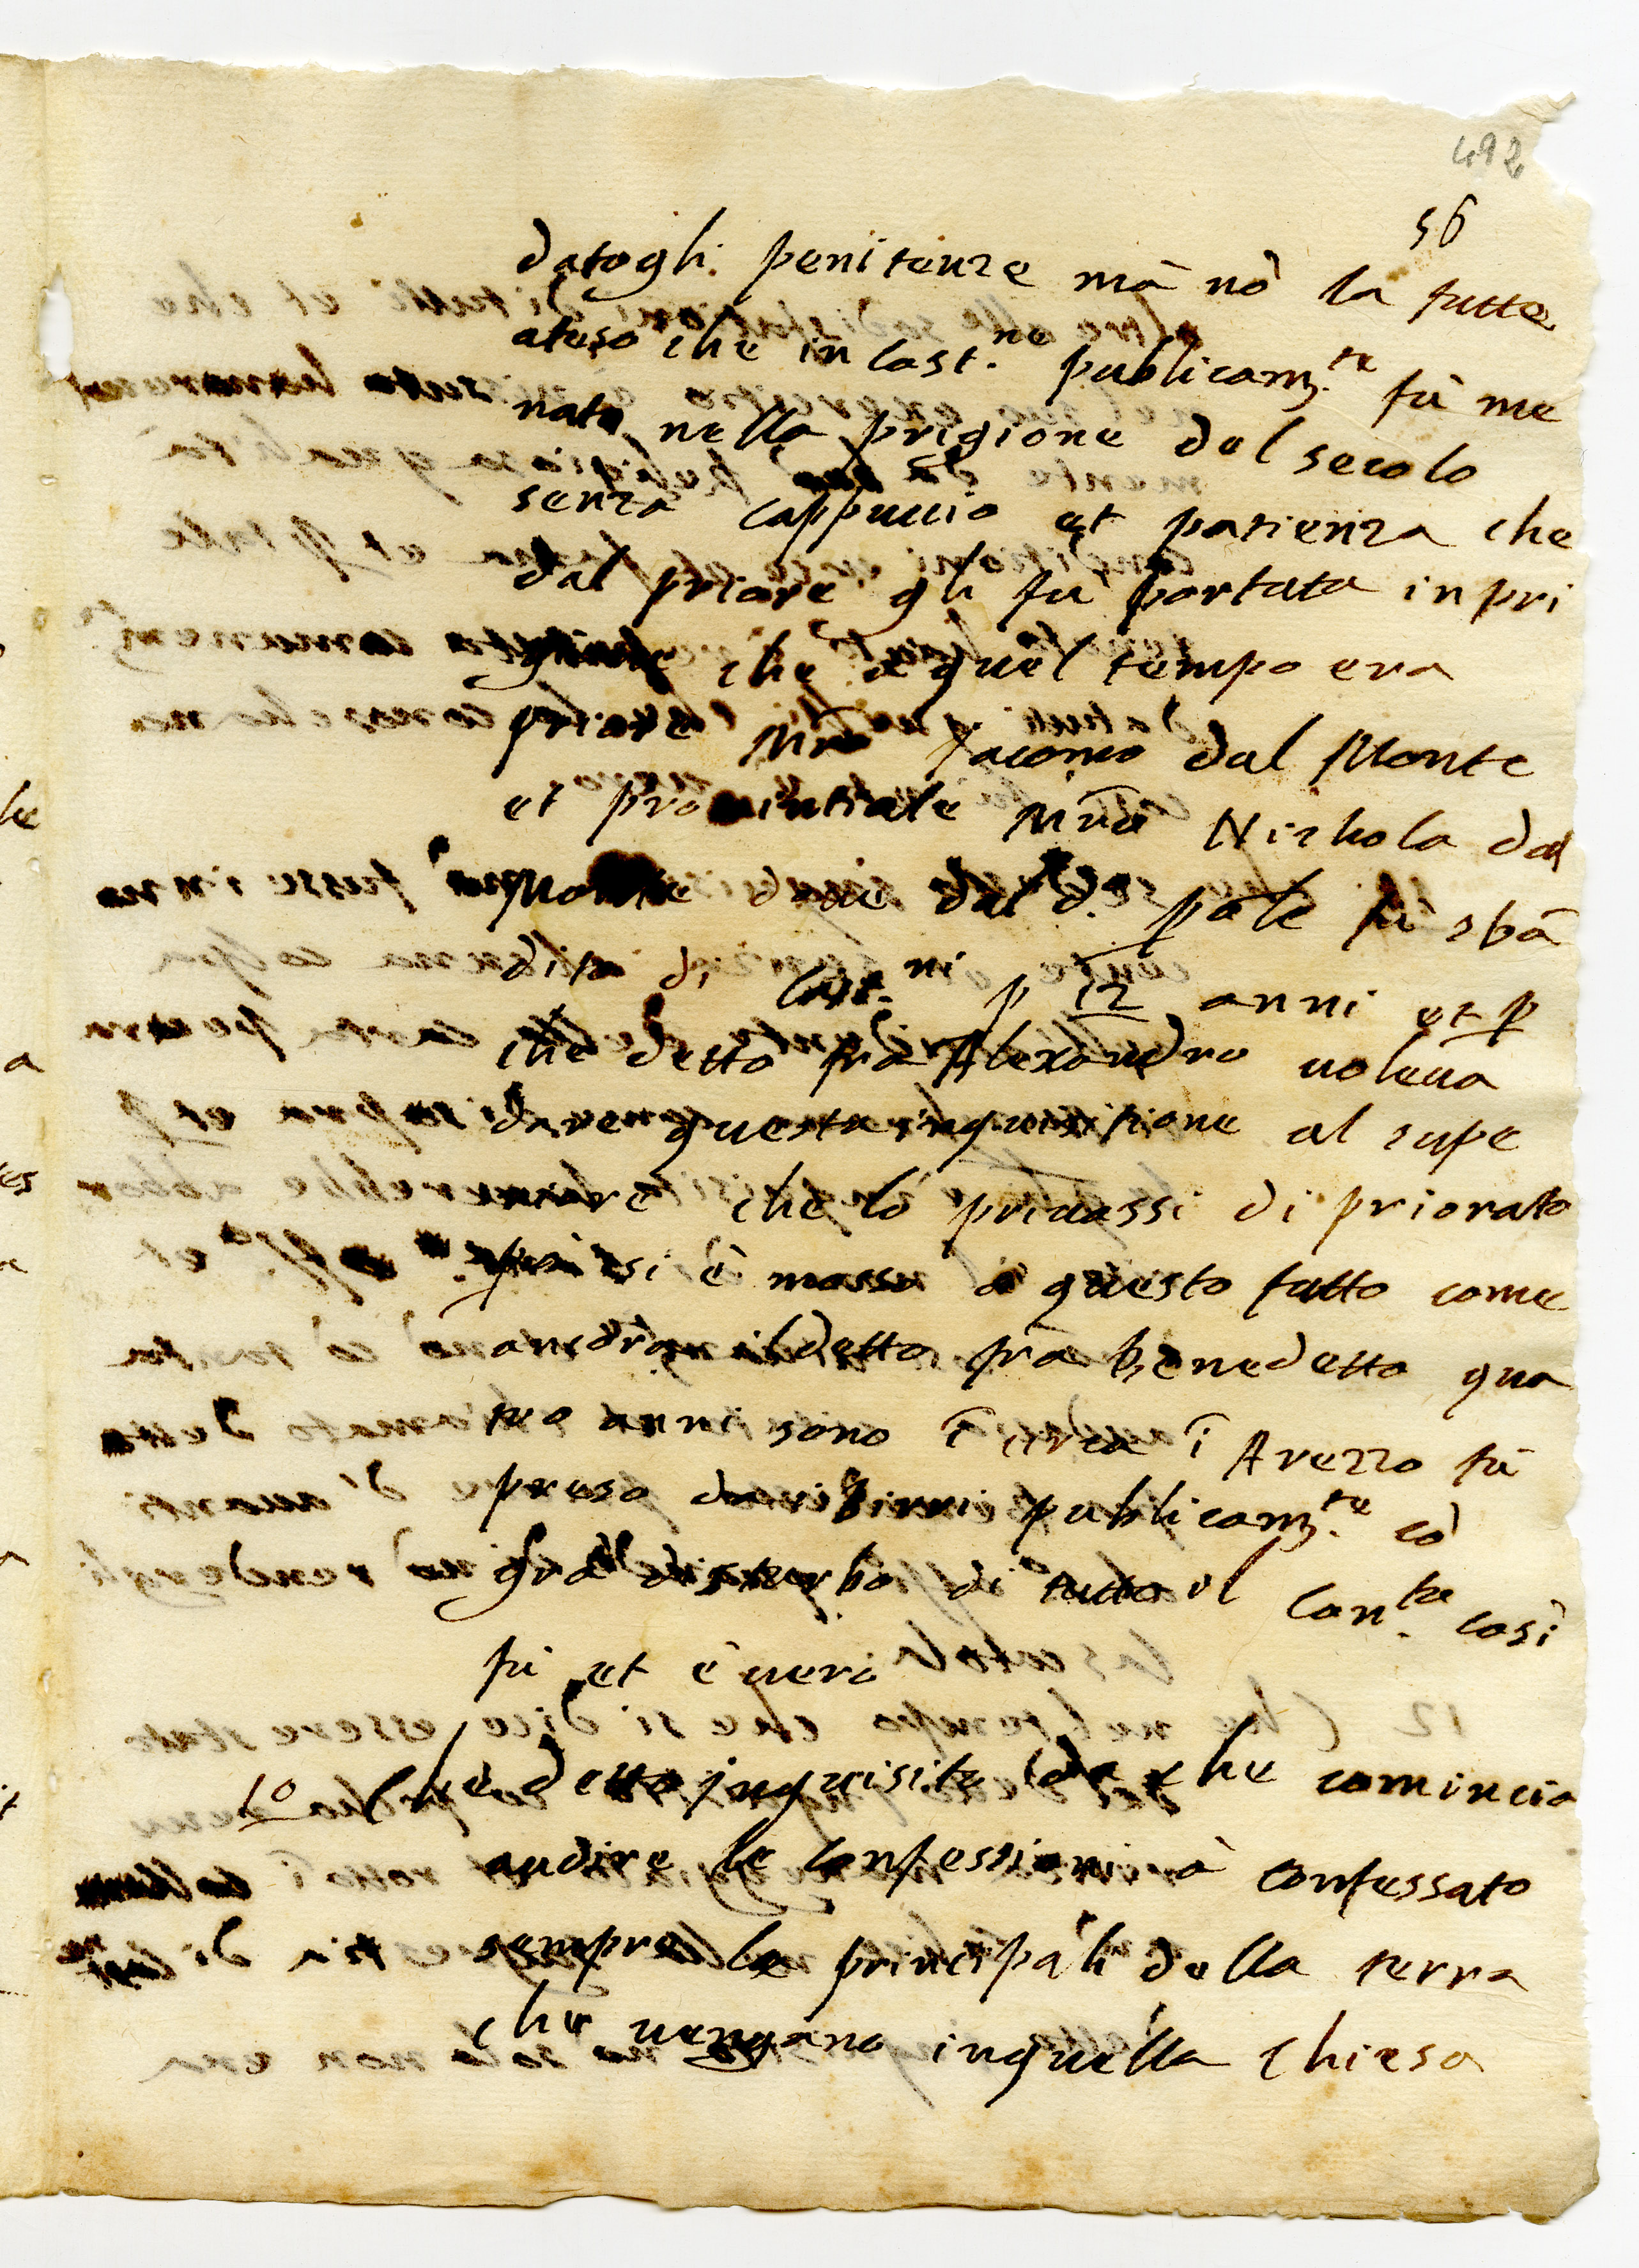 492
56
datogli penitenze mā nō la fatte
ateso che in Cast.ne publicam.te fù me
nato nella prigione del secolo
senza cappuccio et patienza che
dal priore gli fù portata in pri
gione che à quel tempo era
priore Mrō Jacomo dal Monte
et provintiale Mrō Nicholo dal
Monte doue dal d.º pāle fù sbā
dito di Cast.ni p 12 anni et p
che detto frà Alexandro uoleua
dare questa inquisitione al supe
riore che lo priuassi di priorato
si è mosso à questo fatto come
ancora il detto frà Benedetto qua
tro anni sono ī circa ī Arezzo fù
preso da i birri publicam.te cō
grā disturbo di tutto il Con.to così
fù et è uero
10 Che detto inquisito da che comincio
audire le confessioni à confessato
sempre le principali della terra
che uengano in quella chiesa